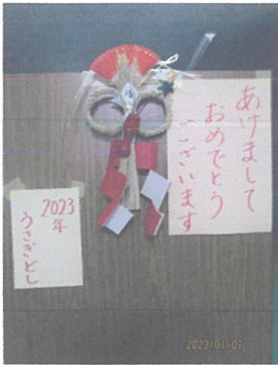 あけまして
おめでとう
ございます
2023
年
うさぎどし
2023/01/07